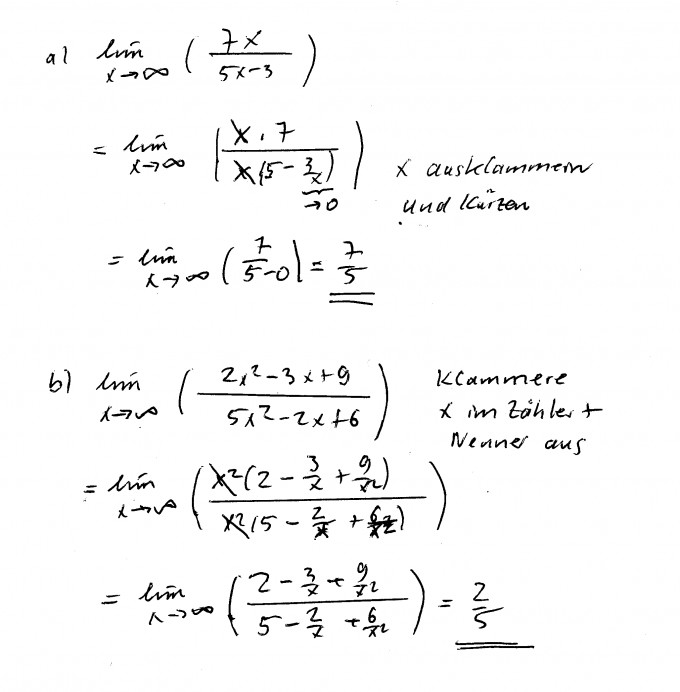 a) lim x→∞ ( 7x / 5x-3 )
= lim x→∞ ( x · 7 / x(5 - 3/x) ) →0 x ausklammern
und Kürzen
= lim x→∞ ( 7 / 5-0 ) = 7/5
b) lim x→∞ ( 2x²-3x+9 / 5x²-2x+6 ) Klammere
x im Zähler +
Nenner aus
= lim x→∞ ( x²(2 - 3/x + 9/x²) / x²(5 - 2/x + 6/x²) )
= lim x→∞ ( 2 - 3/x + 9/x² / 5 - 2/x + 6/x² ) = 2/5